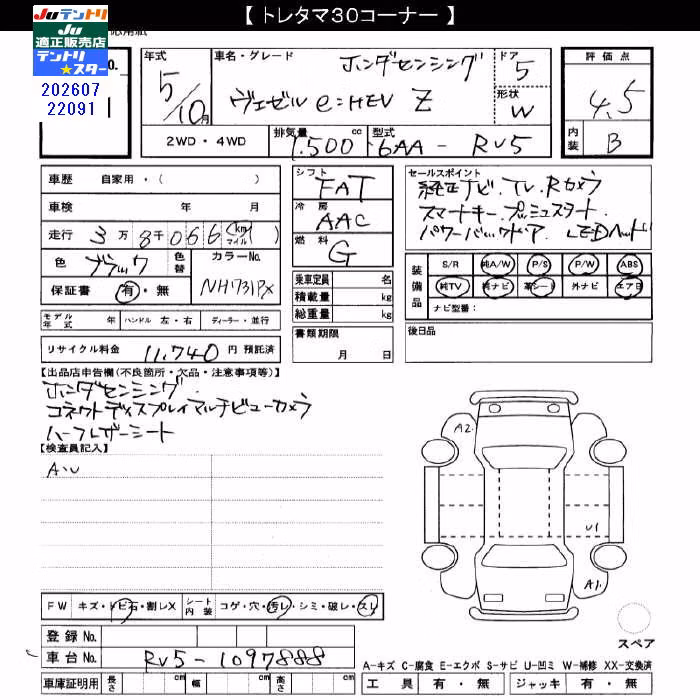 【 トレタマ30コーナー 】
JUテントリ
JU
適正販売店
テントリ
★スター
202607
22091
年式 5/10月
車名・グレード ホンダセンシング
ヴェゼル e:HEV Z
ドア 5
形状 W
評価点 4.5
内装 B
2WD・4WD 排気量 1.500 cc 型式 6AA - RV5
車歴 自家用・( )
車検 年 月
走行 3万8千066 (km マイル)
色 ブラック 色替 カラーNo. NH731PX
保証書 有・無
モデル年式 年 ハンドル 左・右 ディーラー・並行
リサイクル料金 11,740 円 預託済
シフト FAT
冷房 AAC
燃料 G
乗車定員 名
積載量 kg
総重量 kg
書類期限
月 日
セールスポイント
純正ナビ.TV.Rカメラ
スマートキー.プッシュスタート.
パワーバックドア. LEDヘッド
装備品 S/R 純A/W P/S P/W ABS
純TV 純ナビ 革シート 外ナビ エアB
ナビ型番:
後日品
【出品店申告欄(不良箇所・欠品・注意事項等)】
ホンダセンシング.
コネクトディスプレイマルチビューカメラ
ハーフレザーシート
【検査員記入】
A・U
A2.
U1
A1.
FW キズ・トビ石・割レX シート内装 コゲ・穴・汚レ・シミ・破レ・スレ
登録No.
車台No. RV5-1097888
車庫証明用 長さ cm 幅 cm 高さ cm
スペア
A-キズ C-腐食 E-エクボ S-サビ U-凹ミ W-補修 XX-交換済
工具 有・無 ジャッキ 有・無